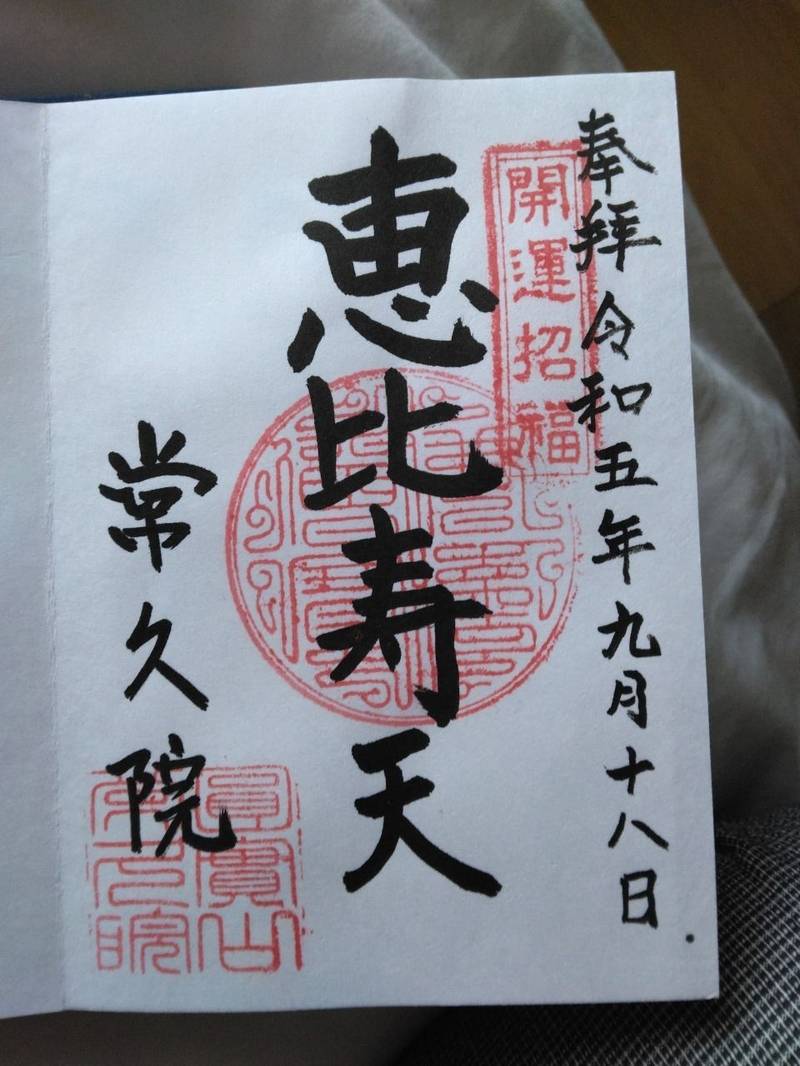 奉拝 令和五年九月十八日
開運招福
恵比寿天
常久院